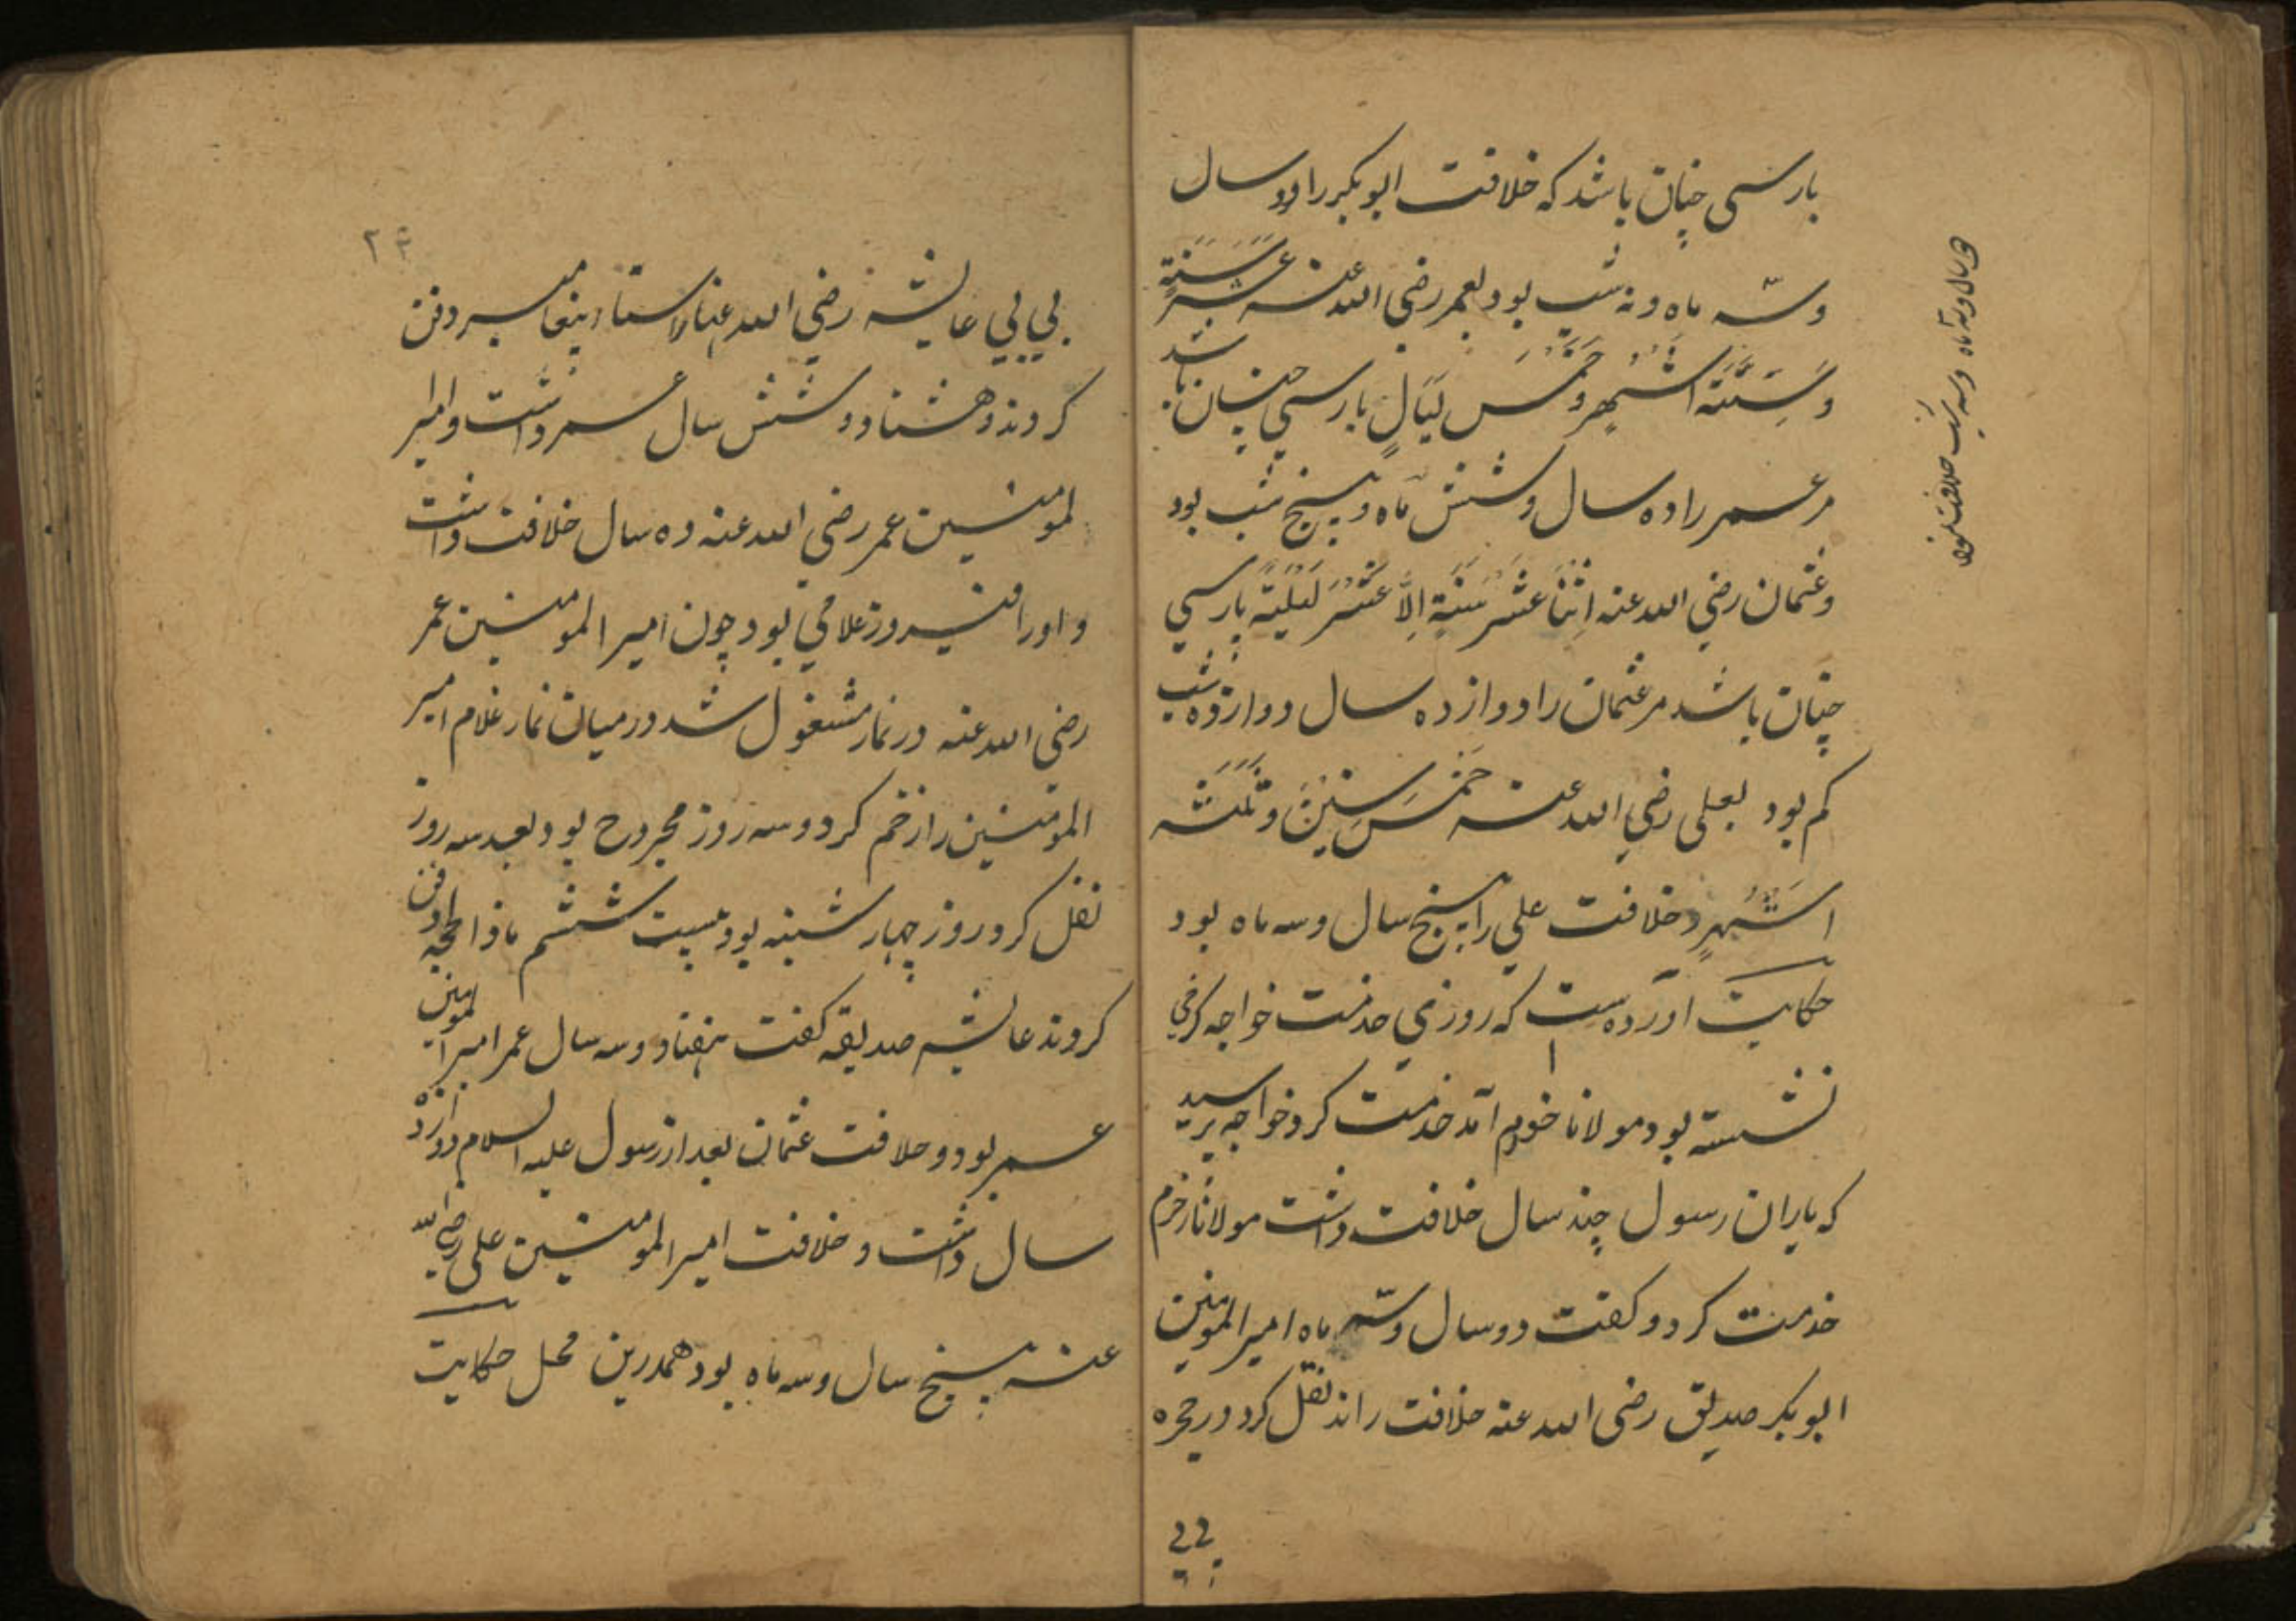 بارسی چنان باشد که خلافت ابوبکر را دو سال
وسّه ماه و نه شب بود لعمر رضی الله عنه عشر سَنَةٍ
وَسِتَّةَ اشهرٍ وخَمْسَ لَیَالٍ بارسی چنان باشد
مر عمر را ده سال و شش ماه و پنج شب بود
وعثمان رضی الله عنه اِثْنَا عَشَرَ سَنَةٍ اِلَّا عَشْرَ لَیْلَةً بارسی
چنان باشد مر عثمان را دوازده سال دوازده شب
کم بود لعلی رضی الله عنه خَمْسَ سِنِینَ وثَلثه
اَشْهُرٍ و خلافت علی را پنج سال و سه ماه بود
حکایت اورده ست که روزی خدمت خواجه کرخی
نشسته بود مولانا خورم آمد خدمت کرد خواجه پرسید
که یاران رسول چند سال خلافت داشت مولانا خرم
خدمت کرد و کفت دو سال وسّه ماه امیر المومنین
ابوبکر صدیق رضی الله عنه خلافت راند نقل کرد در حجره
بی بی
۲۴
بی بی عایشه رضی الله عنها پیغامبر دفن
کردند و هشتاد و شش سال عمر داشت و امیرا
لمومنین عمر رضی الله عنه ده سال خلافت داشت
و اورا فیروز غلامی بود چون امیر المومنین عمر
رضی الله عنه در نماز مشغول شد در میان نماز غلام امیر
المومنین را زخم کرد و سه روز مجروح بود بعد سه روز
نقل کرد روز چهار شنبه بود بیست ششم ماه ذالحجه او را دفن
کردند عایشه صدیقه کفت هفتاد و سه سال عمر امیر المومنین
عمر بود و خلافت عثمان بعد از رسول علیه السلام دوازده
سال داشت و خلافت امیر المومنین علی رضی الله
عنه پنج سال و سه ماه بود همدرین محل حکایت